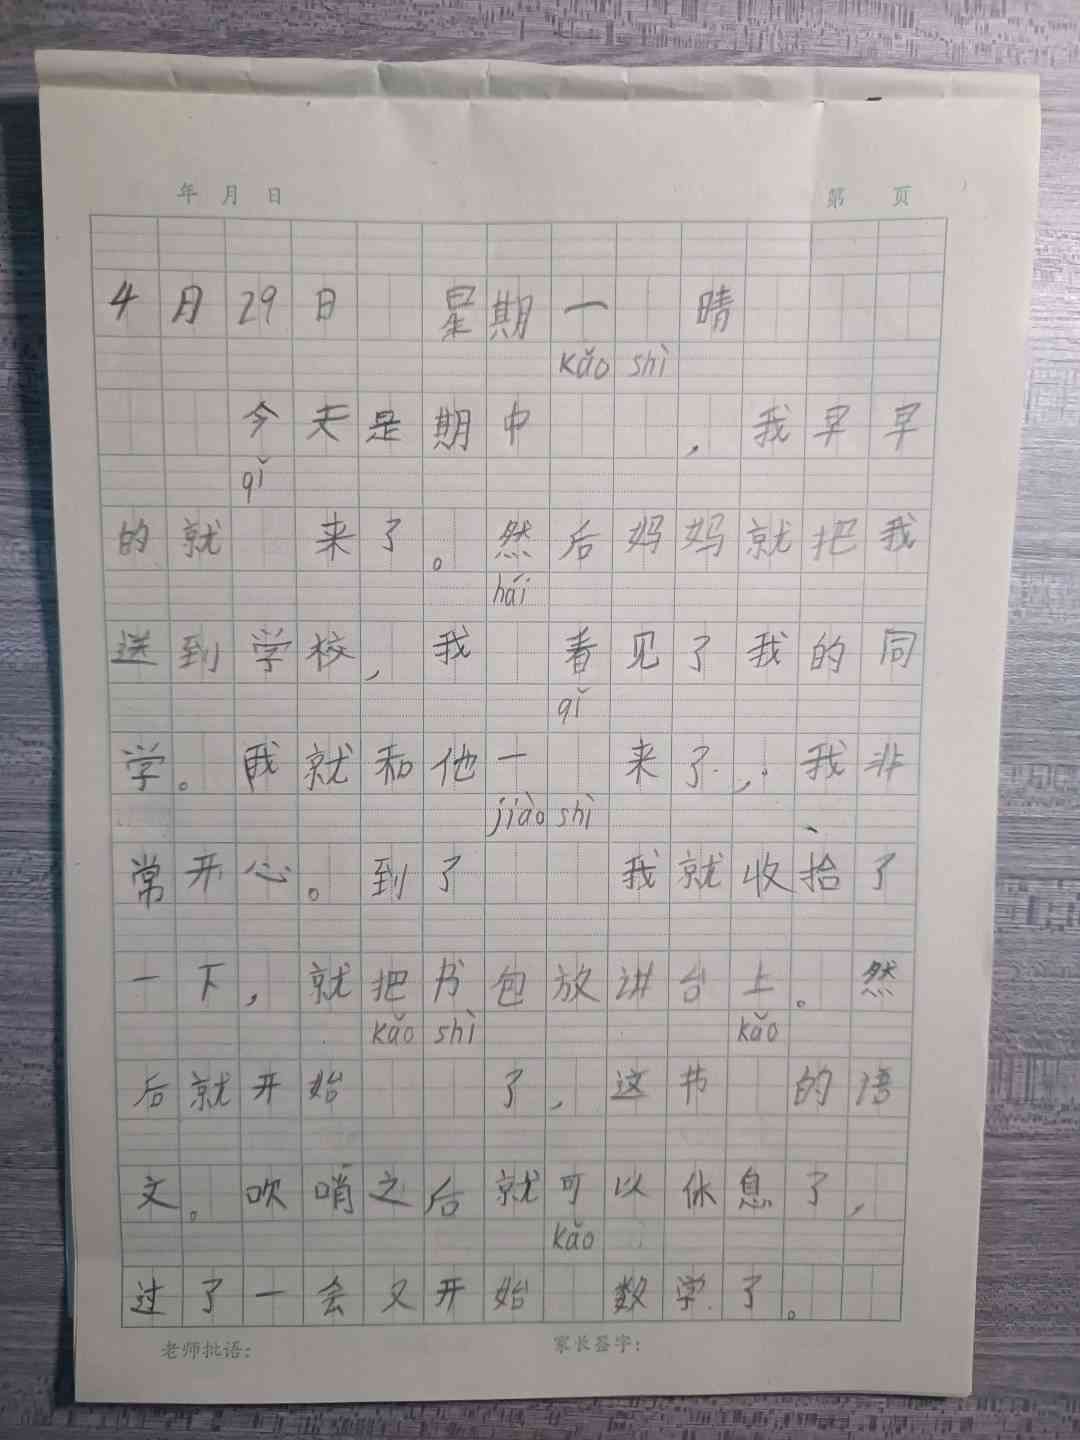 年 月 日 第 页
4月29日 星期一 晴
kǎo shì
今天是期中 ，我早早
qǐ
的就 来了。然后妈妈就把我
hái
送到学校，我 看见了我的同
qǐ
学。我就和他一 来了，我非
jiào shì
常开心。到了 我就收拾了
一下，就把书包放讲台上。然
kǎo shì kǎo
后就开始 了，这节 的语
文。吹哨之后就可以休息了，
kǎo
过了一会又开始 数学了。
老师批语： 家长签字：